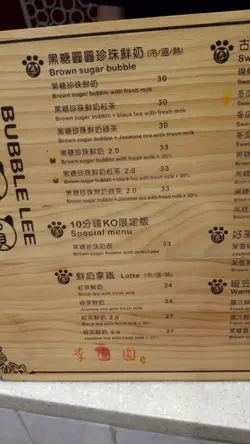 黑糖圓圓珍珠鮮奶 (冷/溫/熱)
Brown sugar bubble
黑糖珍珠鮮奶 30
Brown sugar bubble with fresh milk
黑糖珍珠鮮奶紅茶 30
Brown sugar bubble + black tea with fresh milk
黑糖珍珠鮮奶綠茶 30
Brown sugar bubble + Jasmine tea with fresh milk
黑糖珍珠鮮奶 2.0 33
Brown sugar bubble with fresh milk + 30%
黑糖珍珠鮮奶紅茶 2.0 33
Brown sugar bubble + black tea with fresh milk + 30%
黑糖珍珠鮮奶綠茶 2.0 33
Brown sugar bubble + Jasmine tea with fresh milk + 30%
10分鐘KO限定版
Special menu
黑糖珍珠奶昔 33
Brown sugar bubble with milkshake
鮮奶拿鐵 Latte (冷/溫/熱)
紅茶鮮奶 24
Black tea with fresh milk
綠茶鮮奶 24
Jasmine tea with fresh milk
紅茶鮮奶 2.0 27
Black tea with fresh milk + 30%
綠茶鮮奶 2.0 27
Jasmine tea with fresh milk + 30%
李圓圓
BUBBLE LEE
古
Sw
冬瓜
好茶